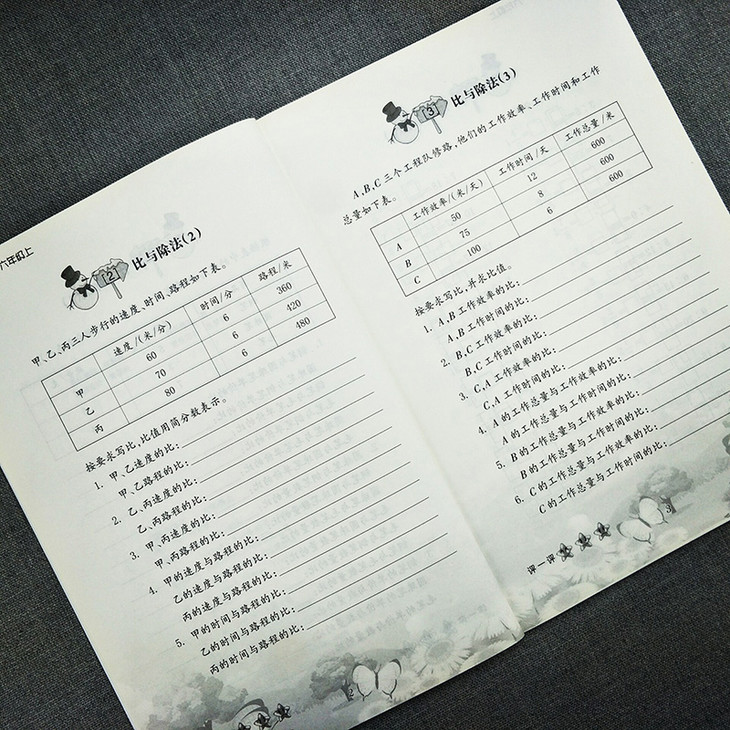 六年级上
[2] 比与除法(2)
甲、乙、丙三人步行的速度、时间、路程如下表。
速度/(米/分) 时间/分 路程/米
甲 60 6 360
乙 70 6 420
丙 80 6 480
按要求写比,比值用简分数表示。
1. 甲、乙速度的比:
甲、乙路程的比:
2. 乙、丙速度的比:
乙、丙路程的比:
3. 甲、丙速度的比:
甲、丙路程的比:
4. 甲的速度与路程的比:
乙的速度与路程的比:
丙的速度与路程的比:
5. 甲的时间与路程的比:
乙的时间与路程的比:
丙的时间与路程的比:
2
[3] 比与除法(3)
A,B,C三个工程队修路,他们的工作效率、工作时间和工作
总量如下表。
工作效率/(米/天) 工作时间/天 工作总量/米
A 50 12 600
B 75 8 600
C 100 6 600
按要求写比,并求比值。
1. A,B工作效率的比:
A,B工作时间的比:
2. B,C工作效率的比:
B,C工作时间的比:
3. C,A工作效率的比:
C,A工作时间的比:
4. A的工作总量与工作效率的比:
A的工作总量与工作时间的比:
5. B的工作总量与工作效率的比:
B的工作总量与工作时间的比:
6. C的工作总量与工作效率的比:
C的工作总量与工作时间的比:
评一评
3